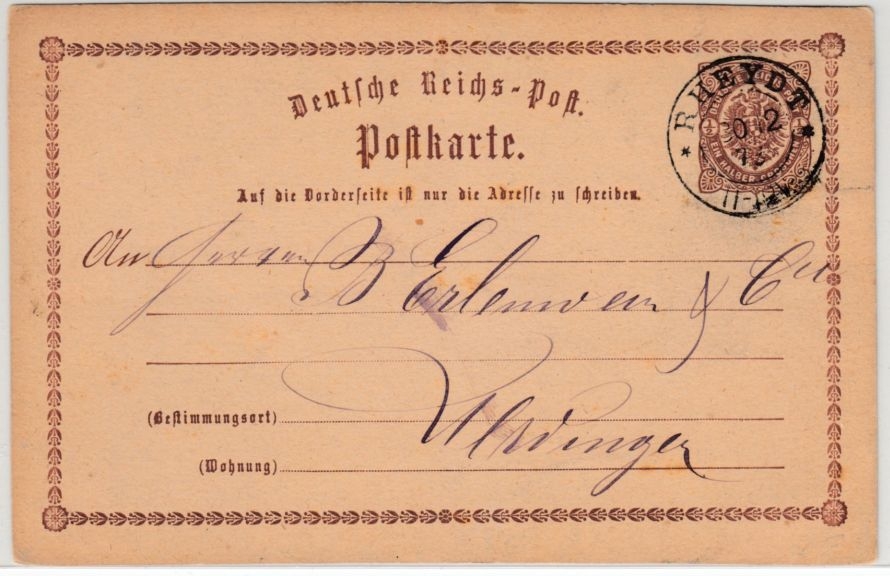 Deutsche Reichs-Post.
Postkarte.
Auf die Vorderseite ist nur die Adresse zu schreiben.
RHEYDT
An Herren B Erlenwein & Cie
(Bestimmungsort)
Uerdingen
(Wohnung)